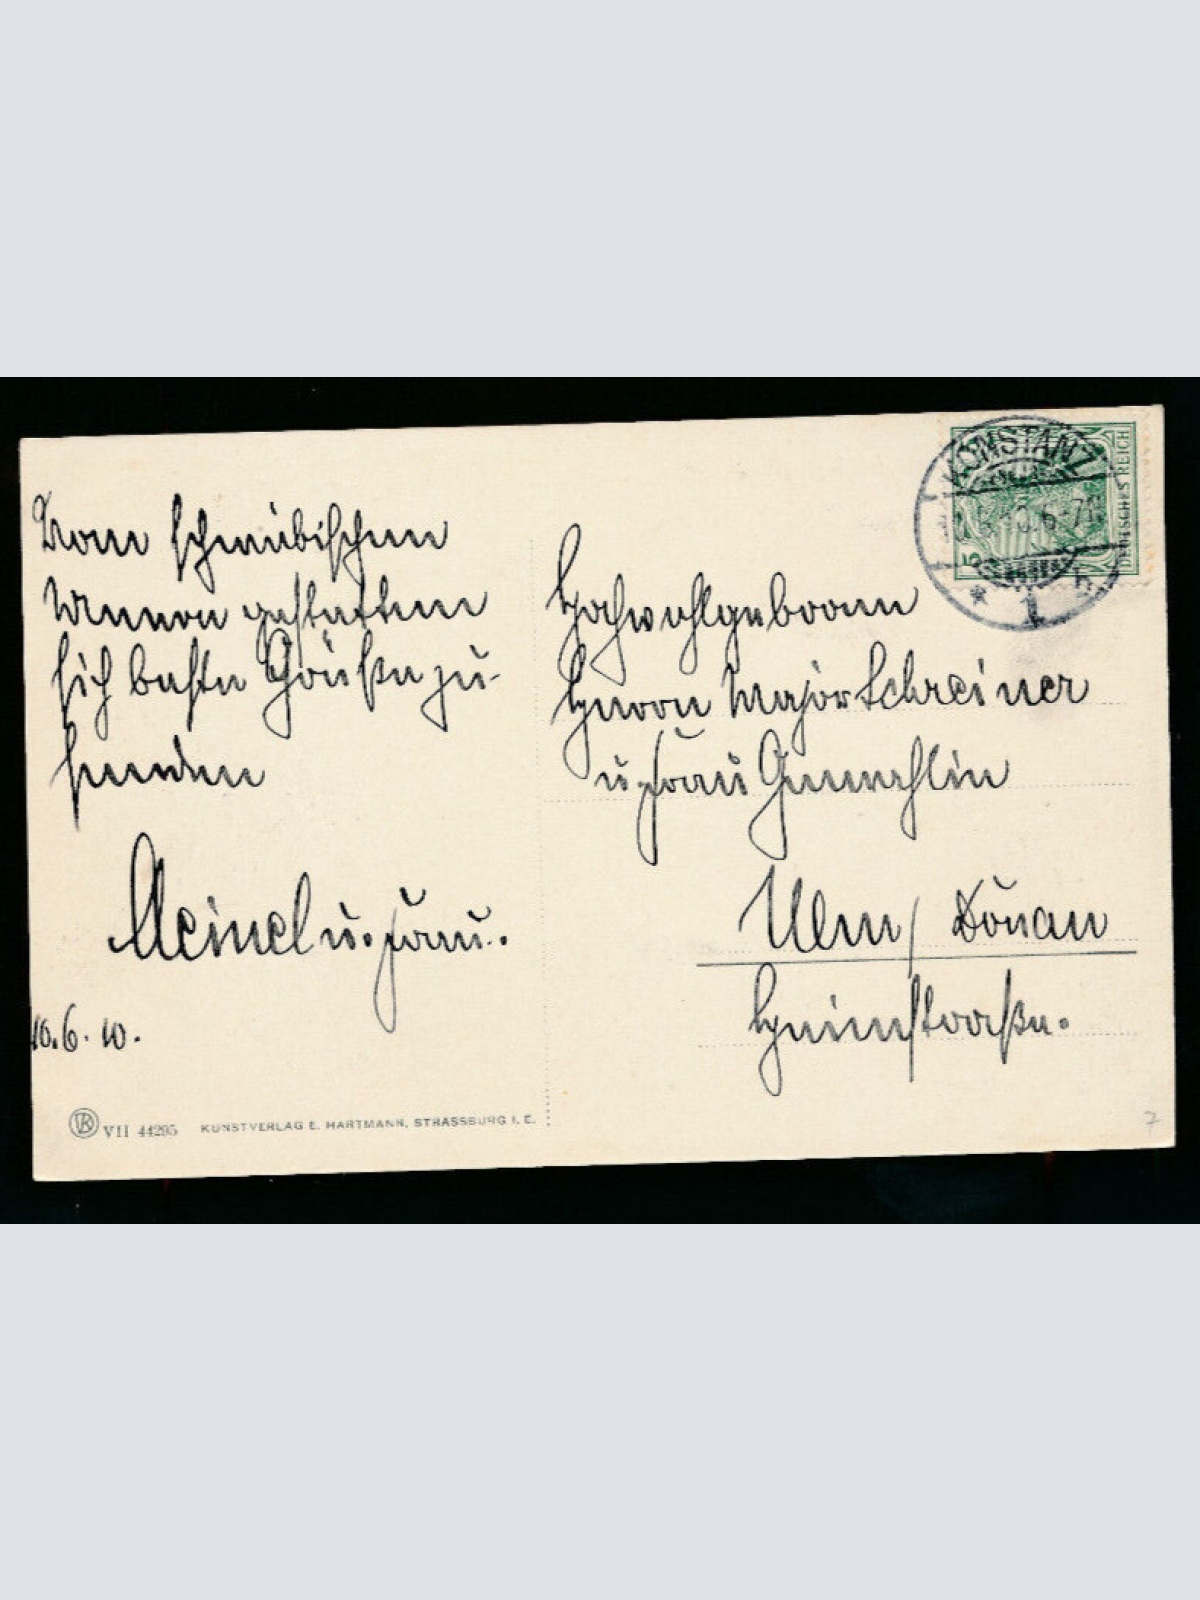 Vom schwäbischen
Meere gestatten
sich beste Grüße zu
senden
Meinel u. Frau.
10.6.10.
VII 44295 KUNSTVERLAG E. HARTMANN, STRASSBURG I. E.
KONSTANZ
6-7N
* 1 h
5
DEUTSCHES REICH
Hochwohlgeboren
Herrn Major Schreiner
u. Frau Gemahlin
Ulm / Donau
Heimstraße.
7